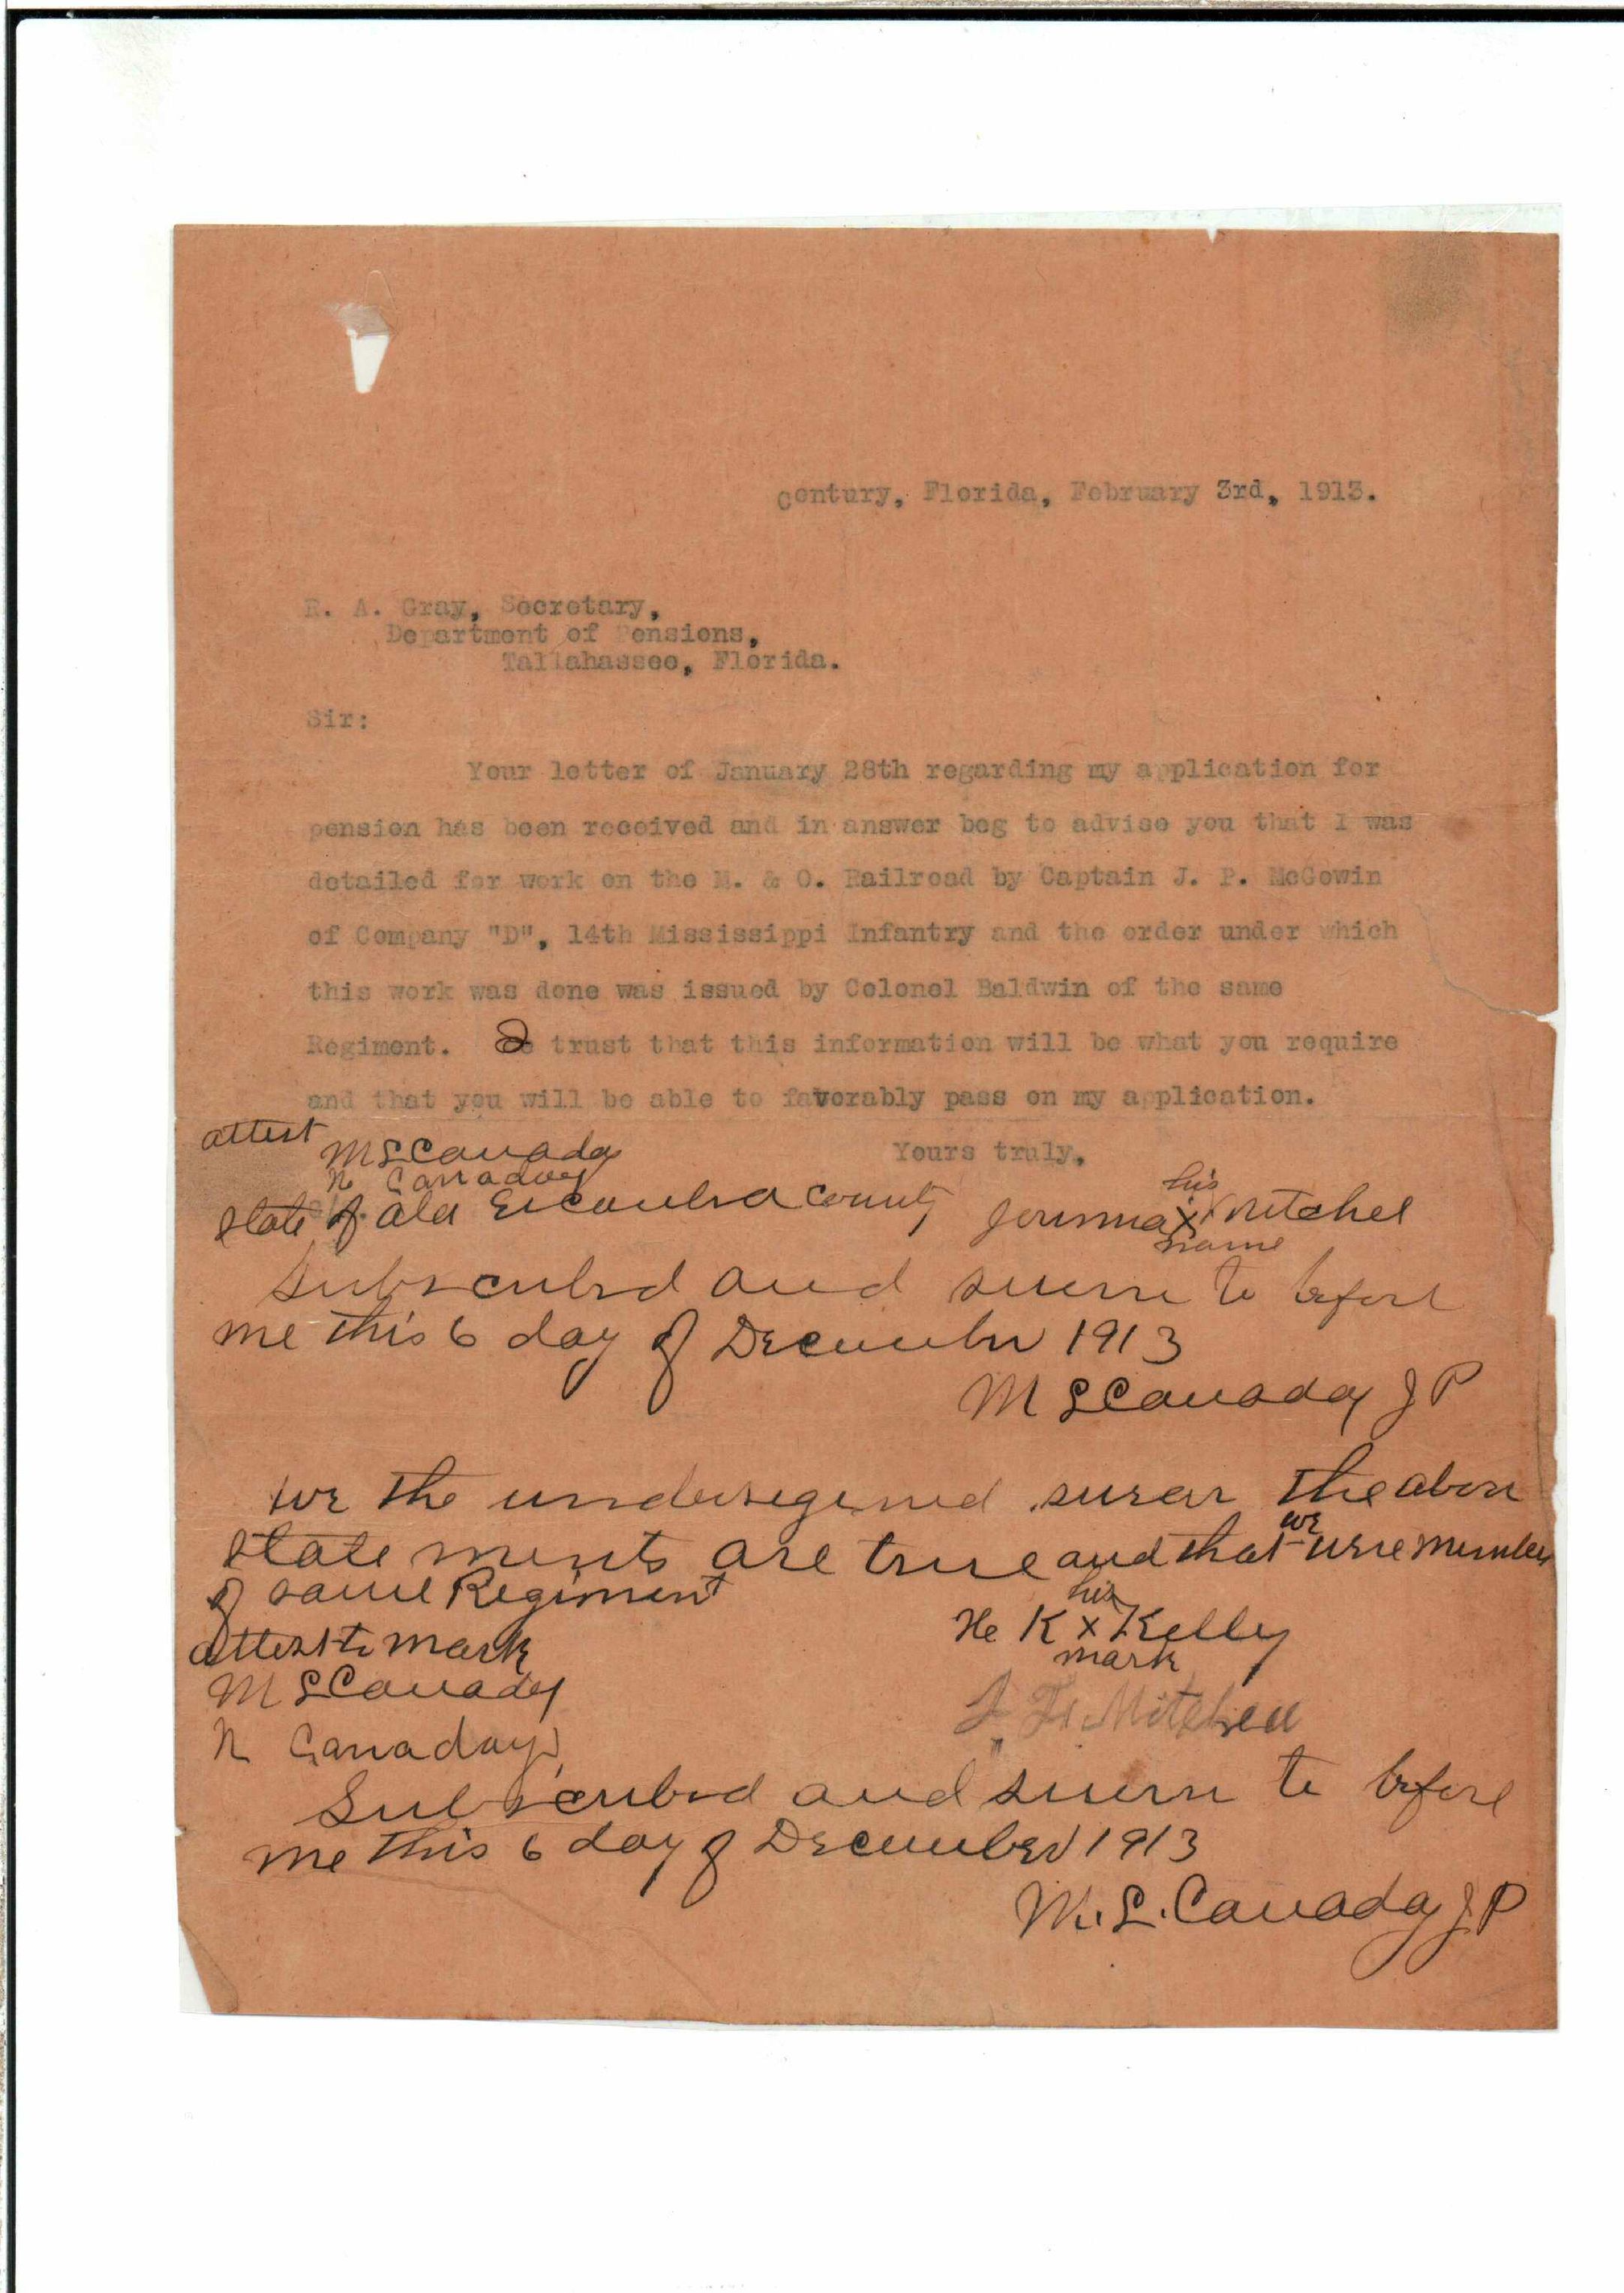 Century, Florida, February 3rd, 1913.
R. A. Gray, Secretary,
Department of Pensions,
Tallahassee, Florida.
Sir:
Your letter of January 28th regarding my application for
pension has been received and in answer beg to advise you that I was
detailed for work on the M. & O. Railroad by Captain J. P. McGowin
of Company "D", 14th Mississippi Infantry and the order under which
this work was done was issued by Colonel Baldwin of the same
Regiment. I trust that this information will be what you require
and that you will be able to favorably pass on my application.
attest
M L Canaday
Yours truly,
N Canaday
his
State of Ala Escambia County X Mitchel
name
Subscribd and sworn to before
me this 6 day of December 1913
M L Canaday J P
we the undersegined swear the above
state ments are true and that we were member
of same Regiment
his
attest to mark
K X Kelly
mark
M L Canaday
Mitchell
N Canaday
Subscribd and sworn to before
me this 6 day of December 1913
M. L. Canaday J P